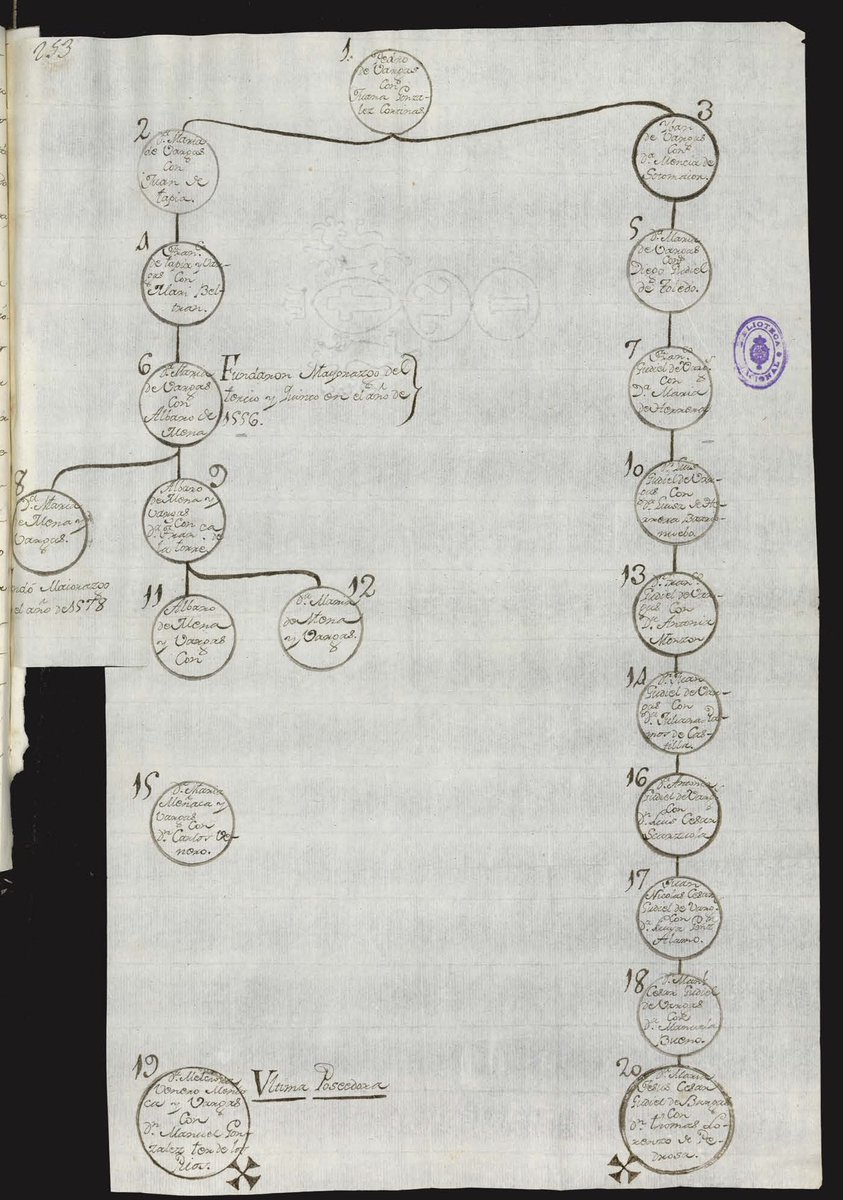 253
1.
Pedro
de Vargas
Con
Juana Gonza-
lez Cortinas
2
D.ª Maria
de Vargas
Con
Juan de
tapia.
3
Juan
de Vargas
Con
D.ª Mencia de
4
Fran.co
de tapia y Var-
gas Con
Mari Bel-
tran.
5
D.ª Maria
de Vargas
Con
Diego Gudiel
de Toledo.
6
D.ª Maria
de Vargas
Con
Albaro de
Mena
Fundaron Mayorazgo del
tercio y Quinto en el año de
1556.
7
Fran.co
Gudiel de Var.s
Con
D.ª Maria
de Herrera
8
D.ª Maria
de Mena y
Vargas.
Maiorazgo
el año de 1578
9
Albaro
de Mena y
Vargas
Con
D.ª Fran.ca de
la torre
10
D.n Luis
Gudiel de Var-
gas Con
D.ª Luisa de He-
rrera Barrio-
nuebo.
11
Albaro
de Mena
y Vargas
Con
12
D.ª Maria
de Mena
y Vargas.
13
D.n Fran.co
Gudiel de Var-
gas Con
D.ª Antonia
Monzon
14
D.n Juan
Gudiel de Var-
gas Con
D.ª Juliana Ra-
mos de Cas-
tilla.
15
D.ª Maria
Meñaca y
Vargas Con
D.n Carlos Ve-
nero.
16
D.ª Antonia
Gudiel de Var.s
Con
D.n Luis Cesar
17
Juan
Nicolas Cesar
Gudiel de Varg.
Con
D.ª Luisa
Alamo.
18
D.n Man.l
Cesar Gudiel
de Vargas
Con
D.ª Manuela
Bueno.
19
D.ª
Venero Meña-
ca y Vargas
Con
D.n Manuel Gon-
zalez
Rios.
Vltima Poseedora
20
D.ª Maria
Jesus Cesar
Gudiel de Bargas
Con
D.n tomas Lo-
renzo de Pe-
drosa.
BIBLIOTECA
NACIONAL